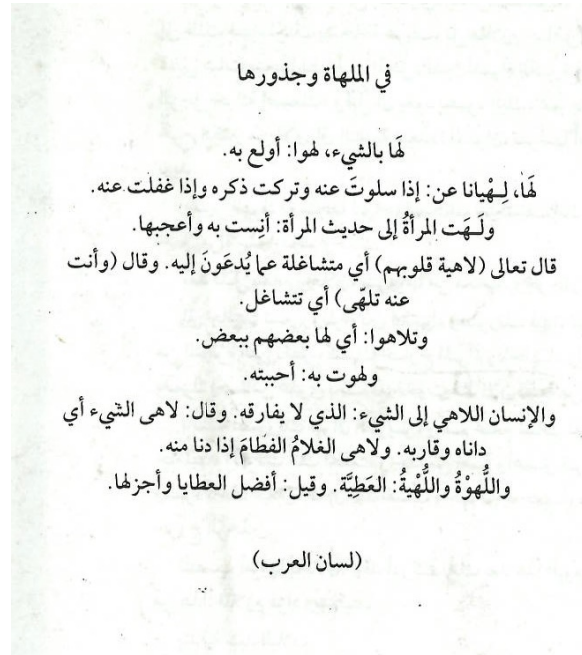 في الملهاة وجذورها
لَهَا بالشيء، لهوا: أولع به.
لَهَا، لِـهْيانا عن: إذا سلوتَ عنه وتركت ذكره وإذا غفلت عنه.
ولَـهَت المرأةُ إلى حديث المرأة: أنِست به وأعجبها.
قال تعالى (لاهية قلوبهم) أي متشاغلة عما يُدعَونَ إليه. وقال (وأنت
عنه تلهّى) أي تتشاغل.
وتلاهوا: أي لها بعضهم ببعض.
ولهوت به: أحببته.
والإنسان اللاهي إلى الشيء: الذي لا يفارقه. وقال: لاهى الشيء أي
داناه وقاربه. ولاهى الغلامُ الفطامَ إذا دنا منه.
واللُّهوْةُ واللُّهْيةُ: العَطِيَّة. وقيل: أفضل العطايا وأجزلها.
(لسان العرب)